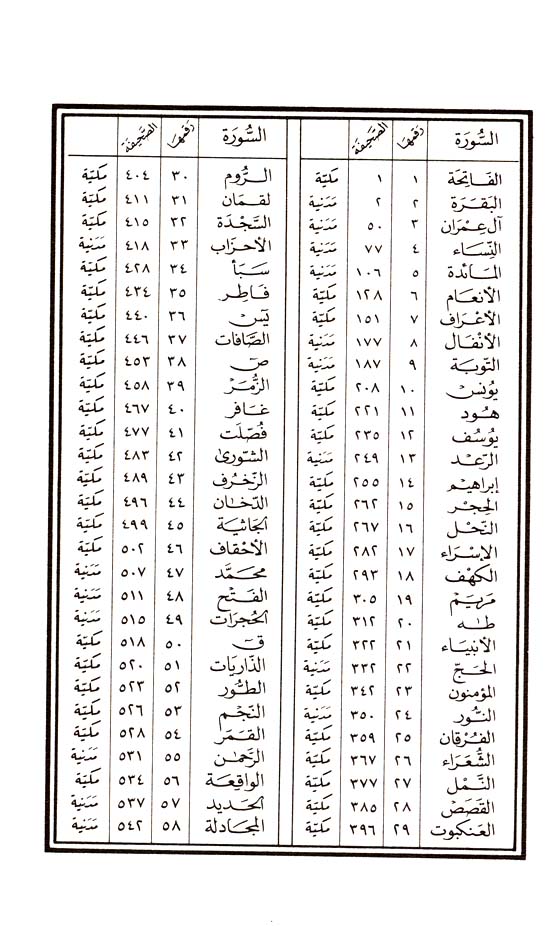 السُّورَة رقمها الصَّحِيفَة
الفَاتِحَة ١ ١ مَكيّة
البَقَرَة ٢ ٢ مَدَنية
آل عِمْرَان ٣ ٥٠ مَدَنية
النِّسَاء ٤ ٧٧ مَدَنية
المَائدة ٥ ١٠٦ مَدَنية
الأنعَام ٦ ١٢٨ مَكيّة
الأعْرَاف ٧ ١٥١ مَكيّة
الأنْفَال ٨ ١٧٧ مَدَنية
التّوبَة ٩ ١٨٧ مَدَنية
يُونس ١٠ ٢٠٨ مَكيّة
هُود ١١ ٢٢١ مَكيّة
يُوسُف ١٢ ٢٣٥ مَكيّة
الرّعْد ١٣ ٢٤٩ مَدَنية
إبراهيم ١٤ ٢٥٥ مَكيّة
الحِجر ١٥ ٢٦٢ مَكيّة
النّحْل ١٦ ٢٦٧ مَكيّة
الإسْرَاء ١٧ ٢٨٢ مَكيّة
الكهْف ١٨ ٢٩٣ مَكيّة
مَريَم ١٩ ٣٠٥ مَكيّة
طٰه ٢٠ ٣١٢ مَكيّة
الأنبيَاء ٢١ ٣٢٢ مَكيّة
الحَجّ ٢٢ ٣٣٢ مَدَنية
المؤمنون ٢٣ ٣٤٢ مَكيّة
النّور ٢٤ ٣٥٠ مَدَنية
الفُرقان ٢٥ ٣٥٩ مَكيّة
الشُّعَرَاء ٢٦ ٣٦٧ مَكيّة
النَّمْل ٢٧ ٣٧٧ مَكيّة
القَصَص ٢٨ ٣٨٥ مَكيّة
العَنكبوت ٢٩ ٣٩٦ مَكيّة
السُّورَة رقمها الصَّحِيفَة
الرُّوم ٣٠ ٤٠٤ مَكيّة
لقمَان ٣١ ٤١١ مَكيّة
السَّجْدَة ٣٢ ٤١٥ مَكيّة
الأحزَاب ٣٣ ٤١٨ مَدَنية
سَبَأ ٣٤ ٤٢٨ مَكيّة
فَاطِر ٣٥ ٤٣٤ مَكيّة
يسٓ ٣٦ ٤٤٠ مَكيّة
الصَّافات ٣٧ ٤٤٦ مَكيّة
صٓ ٣٨ ٤٥٣ مَكيّة
الزُّمَر ٣٩ ٤٥٨ مَكيّة
غَافر ٤٠ ٤٦٧ مَكيّة
فُصّلَت ٤١ ٤٧٧ مَكيّة
الشّورىٰ ٤٢ ٤٨٣ مَكيّة
الزّخرُف ٤٣ ٤٨٩ مَكيّة
الدّخَان ٤٤ ٤٩٦ مَكيّة
الجَاثية ٤٥ ٤٩٩ مَكيّة
الأحْقاف ٤٦ ٥٠٢ مَكيّة
محَمَّد ٤٧ ٥٠٧ مَدَنية
الفَتْح ٤٨ ٥١١ مَدَنية
الحُجرَات ٤٩ ٥١٥ مَدَنية
قٓ ٥٠ ٥١٨ مَكيّة
الذّاريَات ٥١ ٥٢٠ مَكيّة
الطّور ٥٢ ٥٢٣ مَكيّة
النّجْم ٥٣ ٥٢٦ مَكيّة
القَمَر ٥٤ ٥٢٨ مَكيّة
الرَّحمٰن ٥٥ ٥٣١ مَدَنية
الواقِعَة ٥٦ ٥٣٤ مَكيّة
الحَديد ٥٧ ٥٣٧ مَدَنية
المجَادلة ٥٨ ٥٤٢ مَدَنية